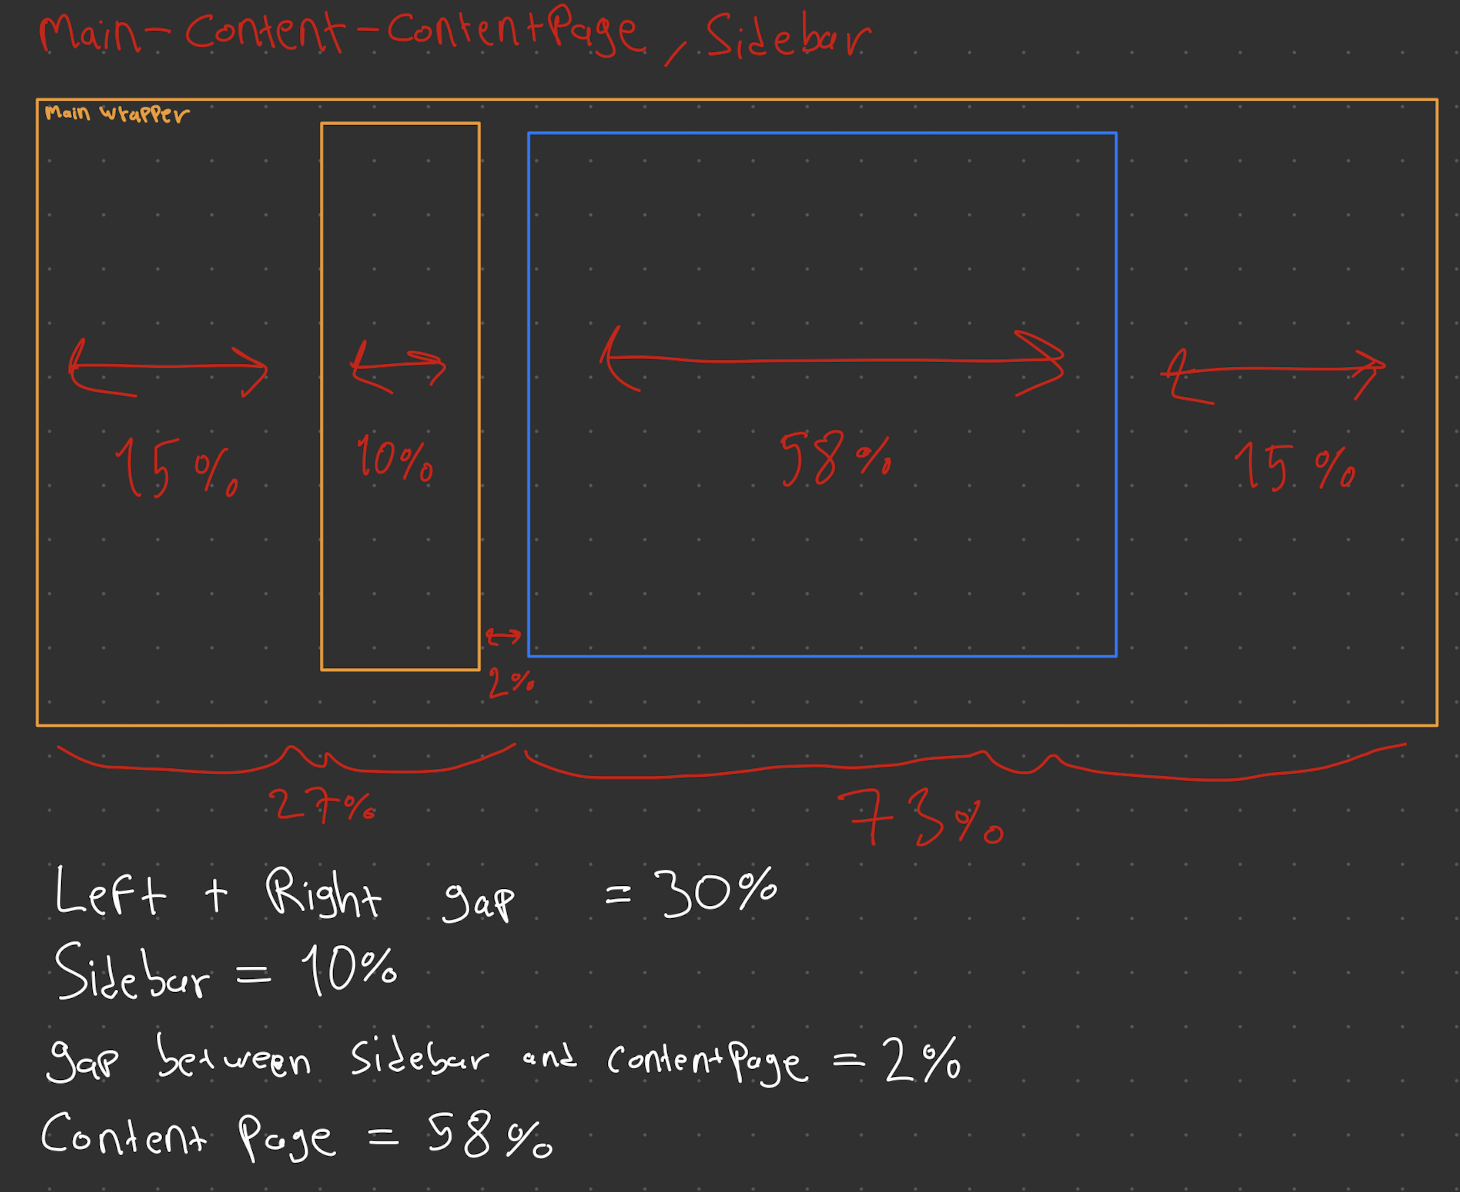 Main-Content-ContentPage, Sidebar
Main wrapper
15% 10% 58% 15%
2%
27% 73%
Left + Right gap = 30%
Sidebar = 10%
gap between sidebar and contentPage = 2%
Content Page = 58%